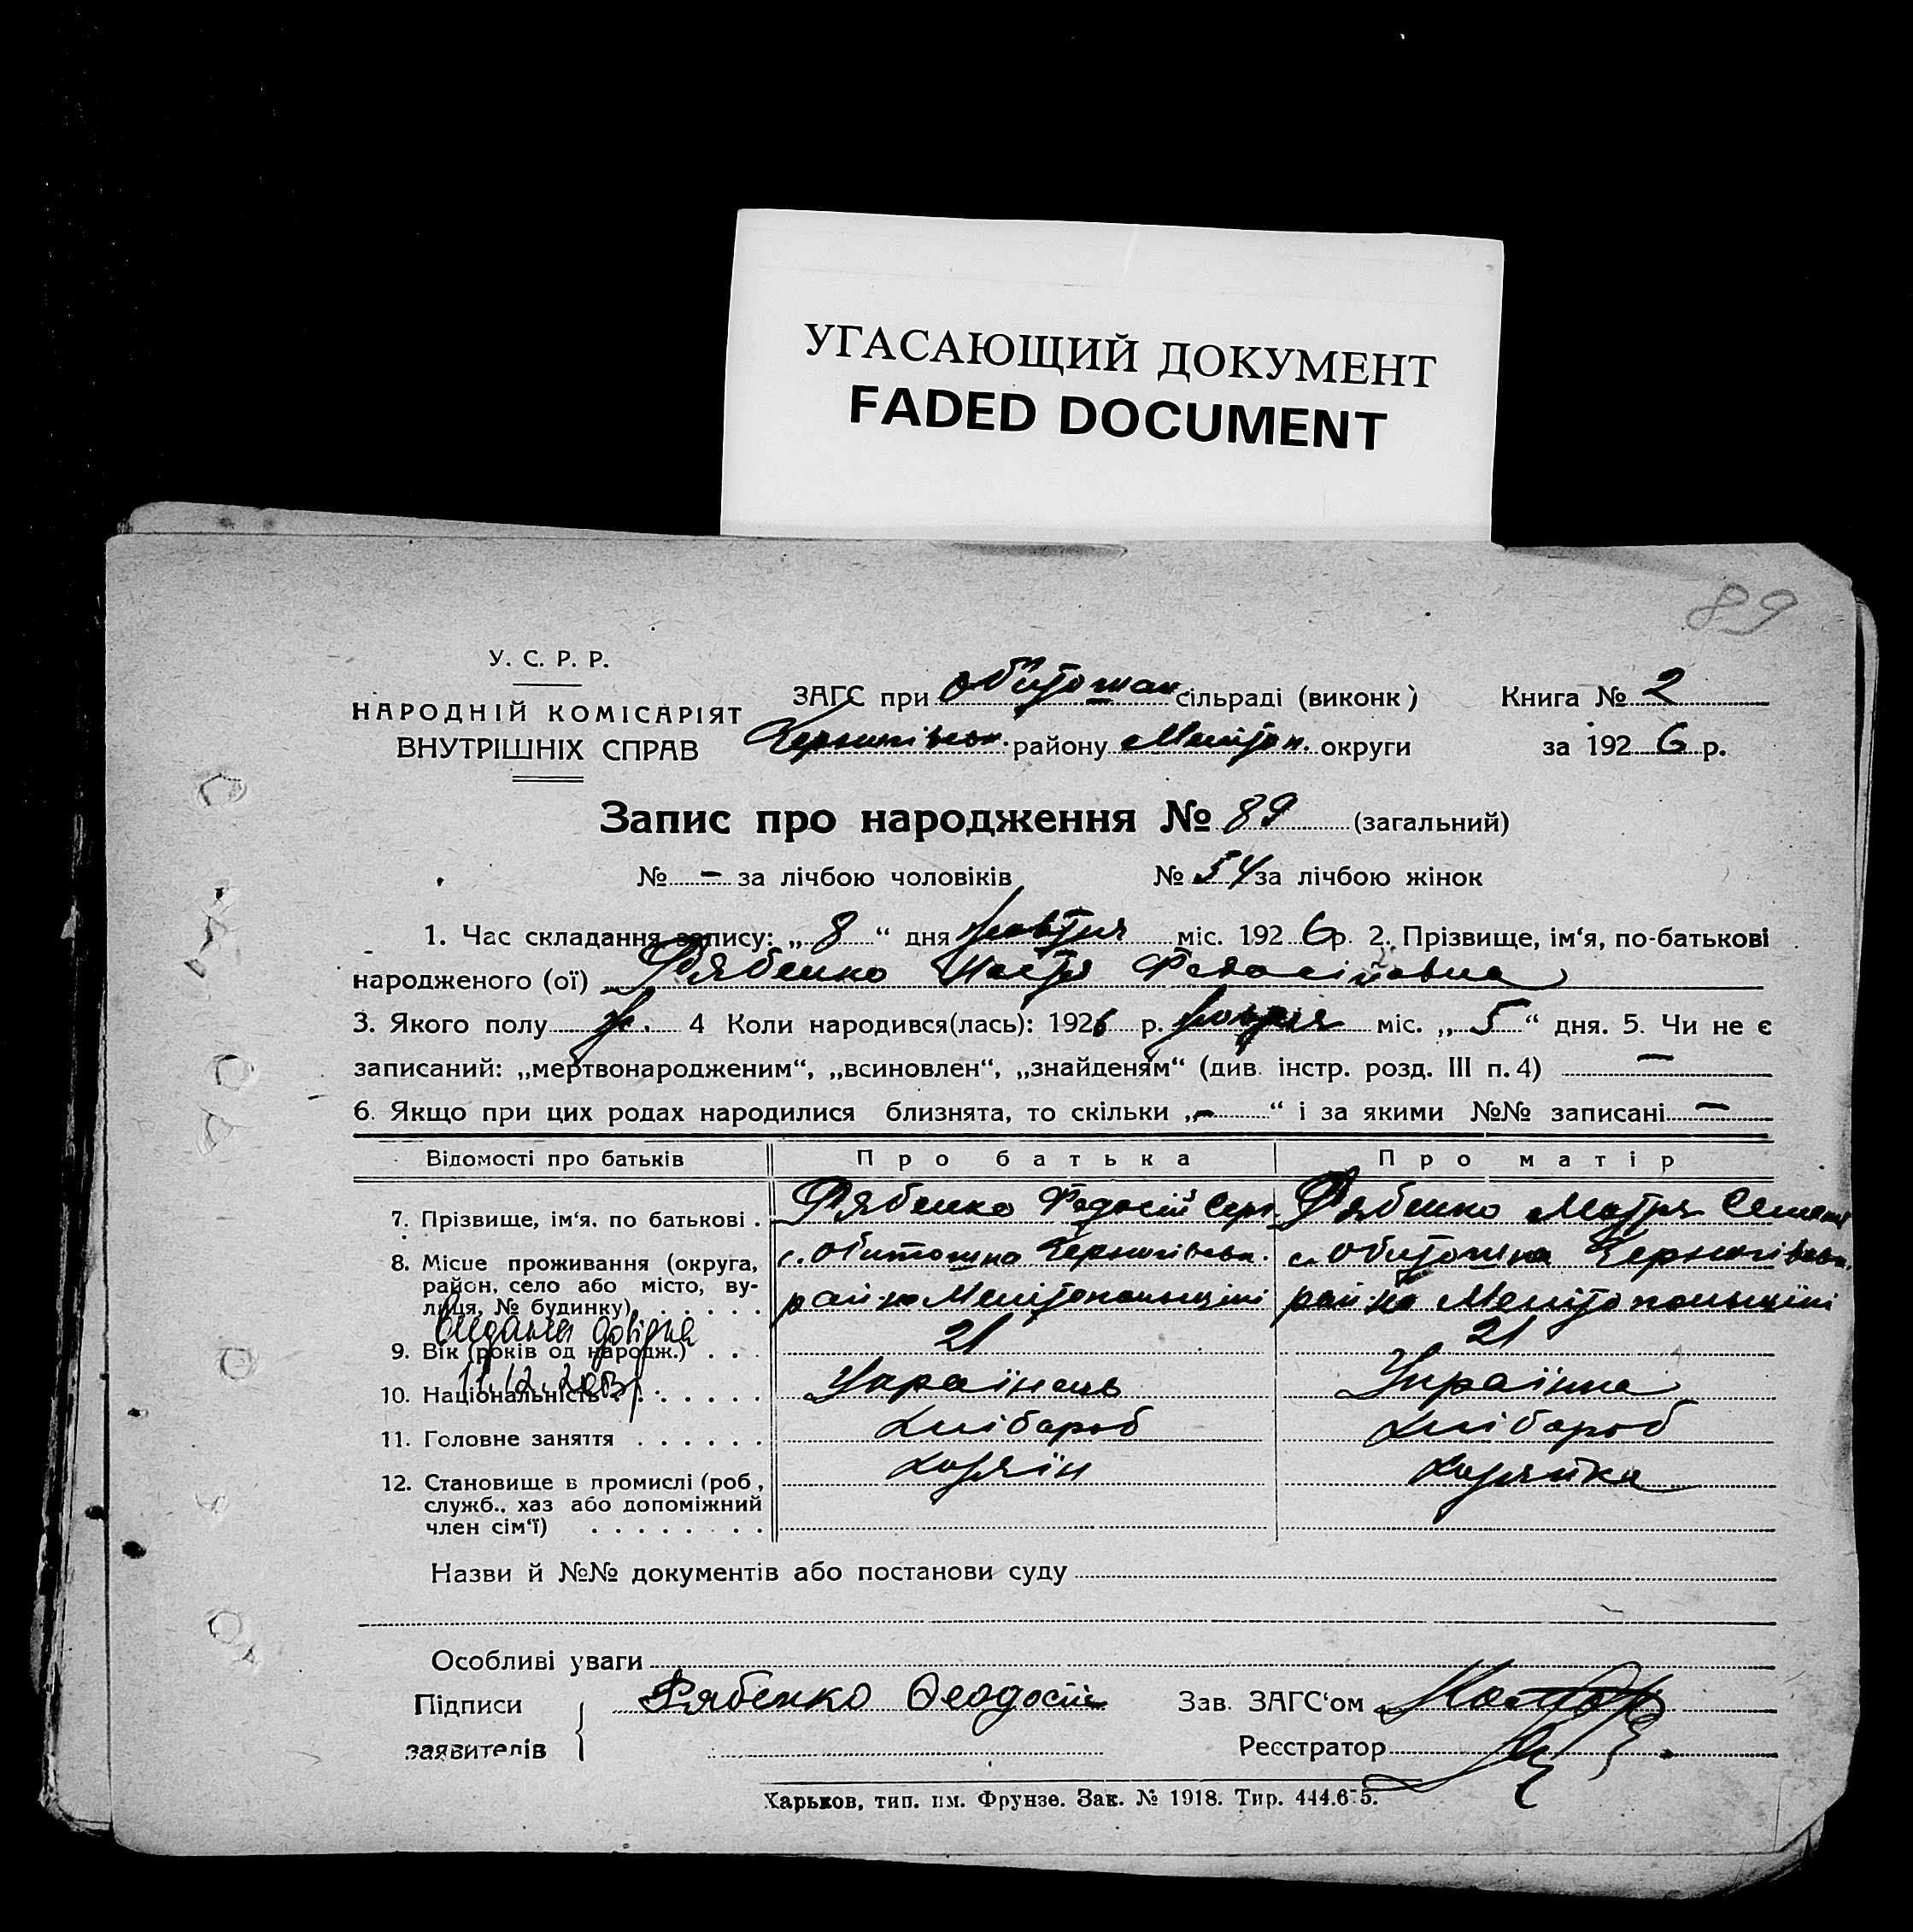 УГАСАЮЩИЙ ДОКУМЕНТ
FADED DOCUMENT
89
У. С. Р. Р.
НАРОДНІЙ КОМІСАРІЯТ
ВНУТРІШНІХ СПРАВ
ЗАГС при Обиточан. сільраді (виконк)
Книга № 2
Чернигівськ. району Мелітоп. округи
за 1926 р.
Запис про народження № 89 (загальний)
№ – за лічбою чоловіків № 54 за лічбою жінок
1. Час складання запису: „ 8 “ дня жовтня міс. 1926 р. 2. Прізвище, ім‘я, по-батькові
народженого (ої) Рябенко Настя Федосіївна
3. Якого полу ж. 4 Коли народився(лась): 1926 р. жовтня міс. „ 5 “ дня. 5. Чи не є
записаний: „мертвонародженим“, „всиновлен“, „знайденям“ (див. інстр. розд. III п. 4) —
6. Якщо при цих родах народилися близнята, то скільки „ – “ і за якими №№ записані —
Відомості про батьків Про батька Про матір
7. Прізвище, ім‘я, по батькові . Рябенко Федосій Серг. Рябенко Мотря Семен
8. Місце проживання (округа, район, село або місто, вулиця, № будинку) . . . . .
с. Обиточна Чернигівськ. с. Обиточна Чернигівськ.
рай-на Мелітопольщині рай-на Мелітопольщині
Видана довідка
9. Вік (років од народж.) . . . 21 21
11.12.
10. Національність . . . . . . . Українець Українка
11. Головне заняття . . . . . . Хлібороб Хлібороб
12. Становище в промислі (роб, служб., хаз або допоміжний член сім‘ї) . . . . . . . .
Хозяїн Хозяйка
Назви й №№ документів або постанови суду
Особливі уваги
Підписи заявителів Рябенко Феодосій
Зав. ЗАГС‘ом
Реєстратор
Харьков, тип. им. Фрунзе. Зак. № 1918. Тир. 444.675.